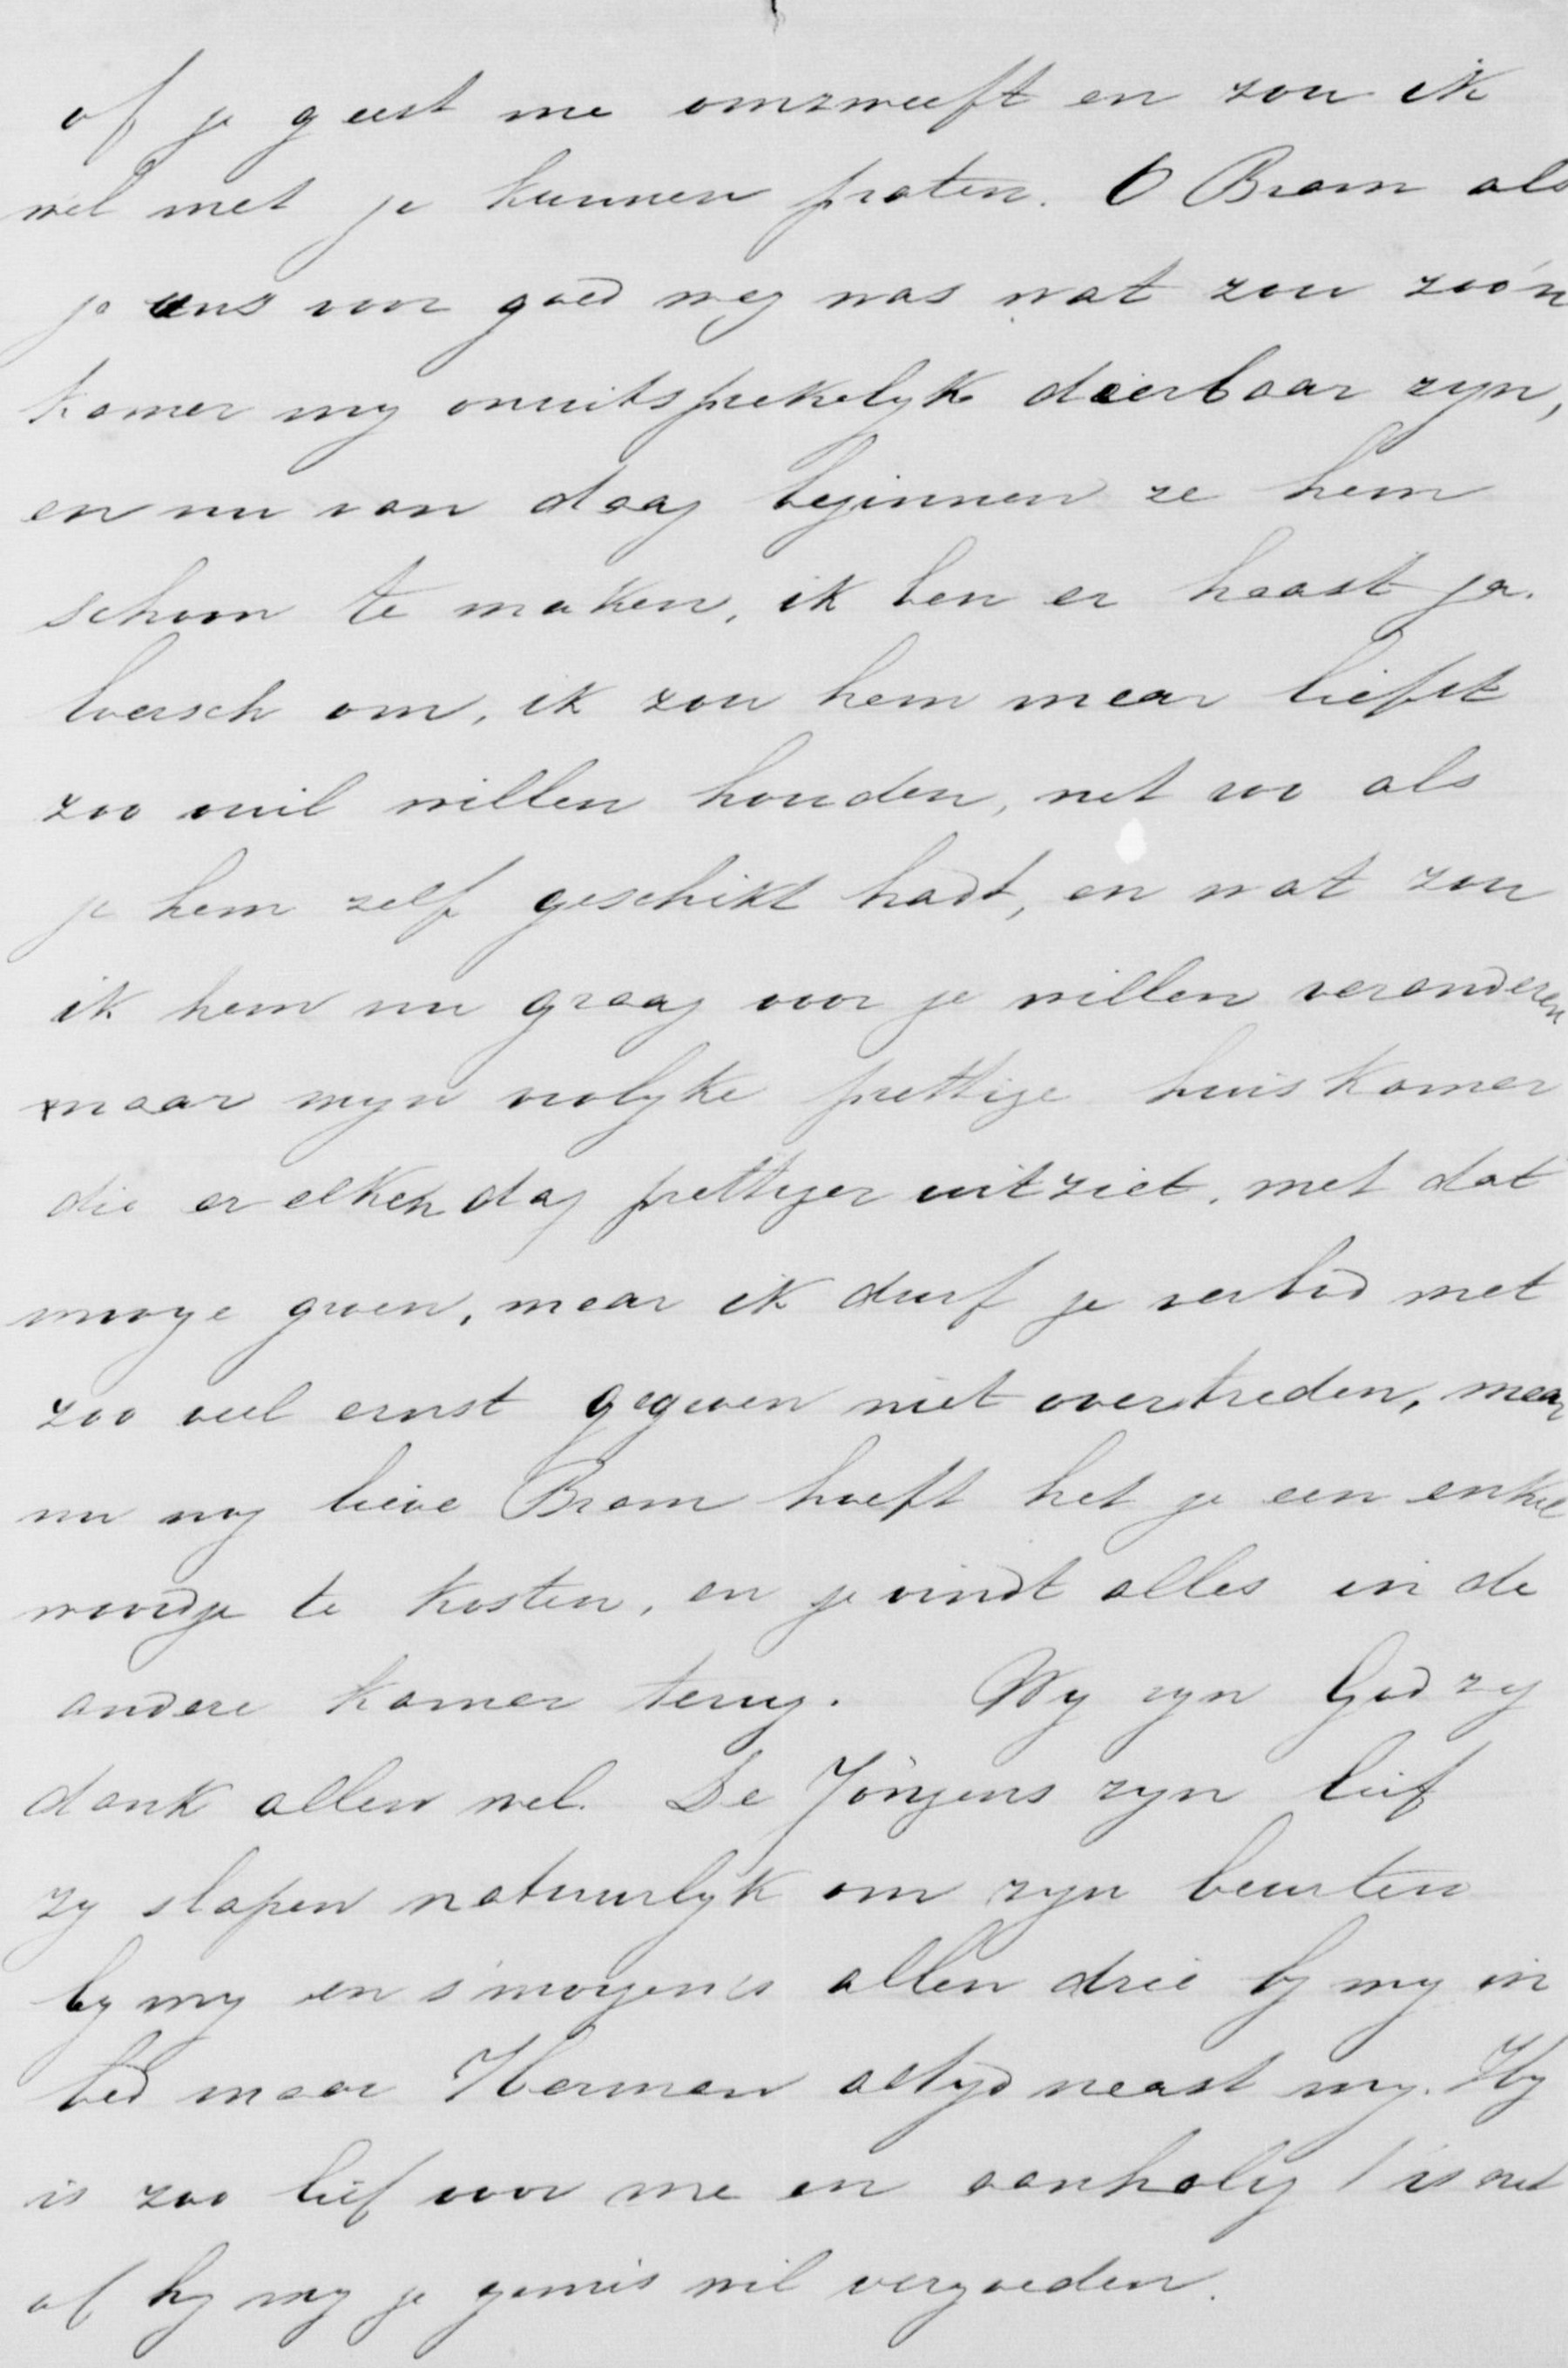 of je geest me omzweeft en zou ik
wel met je kunnen praten. O Bram als
je ons voor goed weg was wat zou zoo'n
kamer my onuitsprekelyk dierbaar zyn,
en nu van daag beginnen ze hem
schoon te maken, ik ben er haast ja.
loersch om, ik zou hem maar liefst
zoo vuil willen houden, net zoo als
je hem zelf geschikt hadt, en wat zou
ik hem nu graag voor je willen veranderen
maar myn vrolyke prettige huiskamer
die er elken dag prettiger uitziet, met dat
mooye groen, maar ik durf je verbod met
zoo veel ernst gegeven niet overtreden, maar
nu nog lieve Bram hoeft het je een enkel
woordje te kosten, en je vindt alles in de
andere kamer terug. Wy zyn God zy
dank allen wel. De Jongens zyn lief
zy slapen natuurlyk om zyn beurten
by my en s'morgens allen drie by my in
bed maar Herman altyd naast my. Hy
is zoo lief voor me en aanhalig 't is net
of hy my je gemis wil vergoeden.